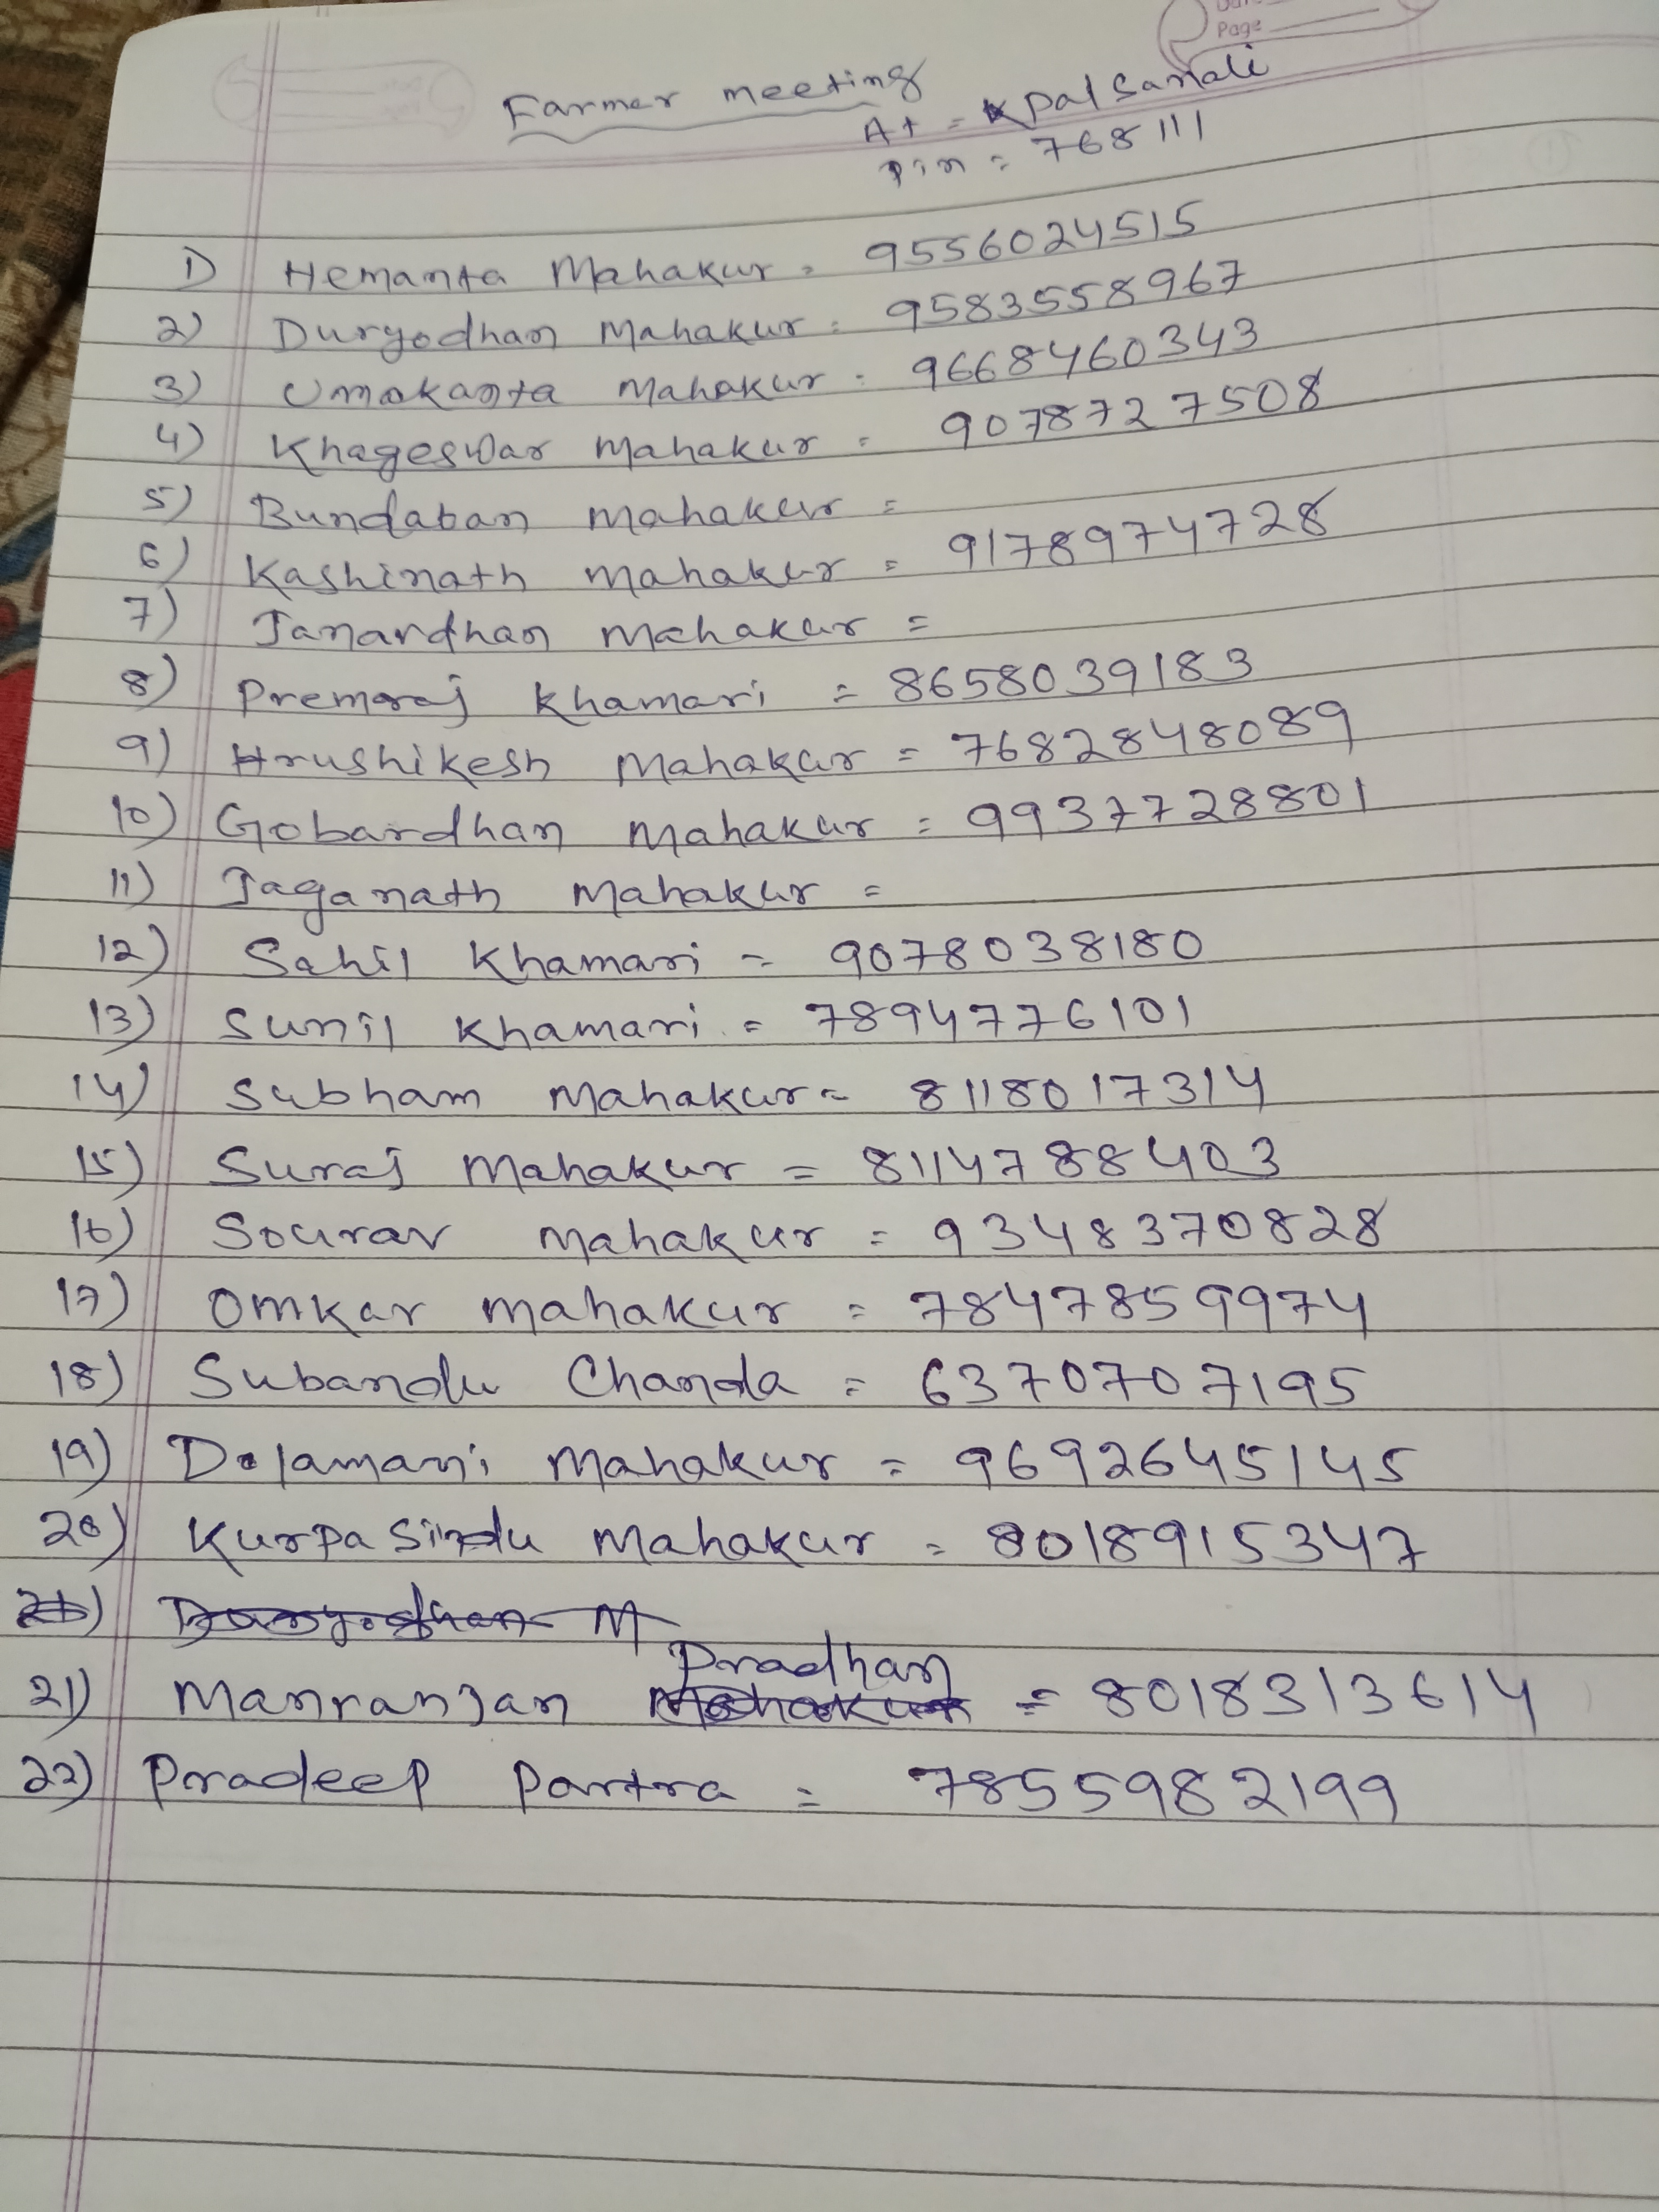 Page
Farmer meeting
At = Palsanali
Pin = 768111
1) Hemanta Mahakur = 9556024515
2) Duryodhan Mahakur = 9583558967
3) Umakanta Mahakur = 9668460343
4) Khageswar Mahakur = 9078727508
5) Bundaban Mahakur =
6) Kashinath Mahakur = 9178974728
7) Janardhan Mahakur =
8) Premaraj Khamari = 8658039183
9) Hrushikesh Mahakur = 7682848089
10) Gobardhan Mahakur = 9937728801
11) Jaganath Mahakur =
12) Sahil Khamari = 9078038180
13) Sunil Khamari = 7894776101
14) Subham Mahakur = 8118017314
15) Suraj Mahakur = 8114788403
16) Sourav Mahakur = 9348370828
17) Omkar Mahakur = 7847859974
18) Subandu Chanda = 6370707195
19) Dolamani Mahakur = 9692645145
20) Kurpa Sindu Mahakur = 8018915347
21) Duryodhan M
21) Manranjan Pradhan = 8018313614
22) Pradeep Partra = 7855982199